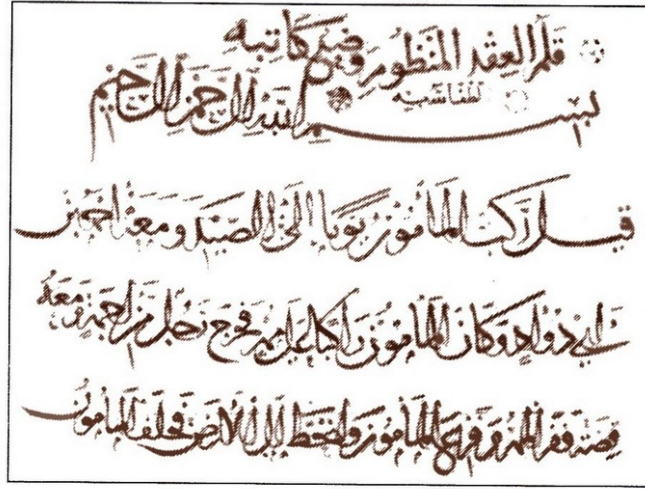 قلم العقد المنظوم وضع كاتبه
لمناسبه
بسم الله الرحمن الرحيم
قيل ركب المأمون يوما الى الصيد ومعه احمد بن
ابي دواد وكان المأمون راكبا على مهر فخرج رجل من اجمة ومعه
قصته فنفر المهر وفزع المأمون وانحط الى الارض فحلف المأمون